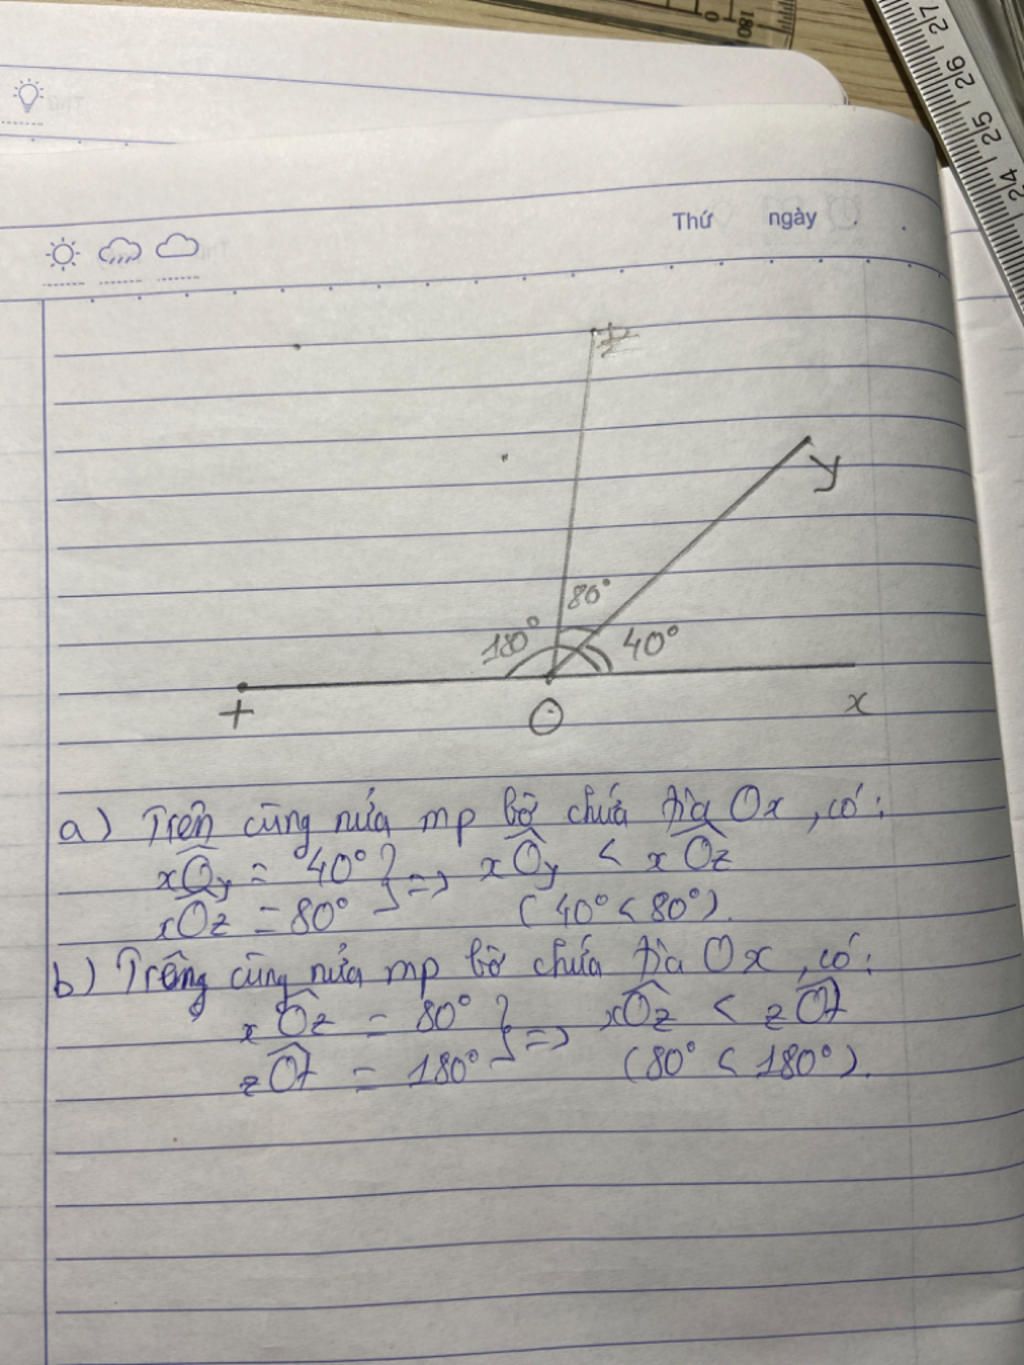 180
0
27
26
25
24
Thứ ngày
z
y
80°
180° 40°
t O x
a) Trên cùng nửa mp bờ chứa tia Ox, có:
xOy = 40° } => xOy < xOz
xOz = 80° (40° < 80°).
b) Trêng cùng nửa mp bờ chứa tia Ox, có:
xOz = 80° } => xOz < zOt
zOt = 180° (80° < 180°).